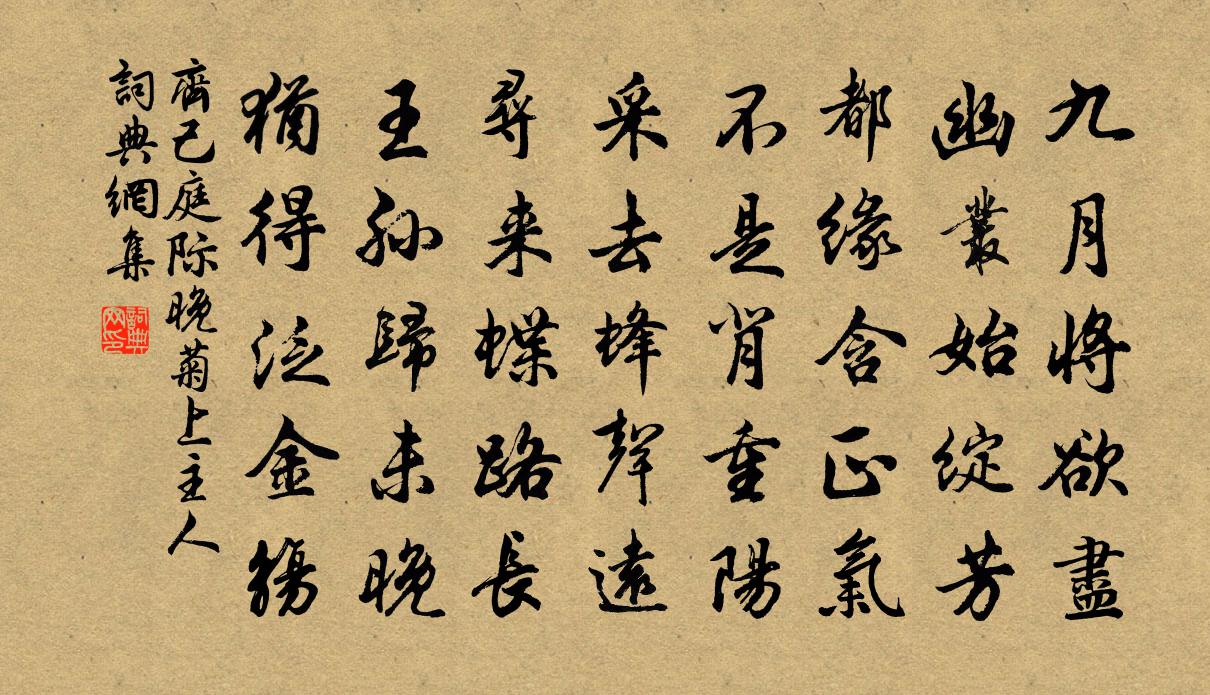 九月將欲盡
幽叢始綻芳
都緣含正氣
不是背重陽
采去蜂聲遠
尋来蝶路長
王孫歸未晚
猶得泛金觴
齊己庭际晚菊上主人
詞典網集
詞典
网印